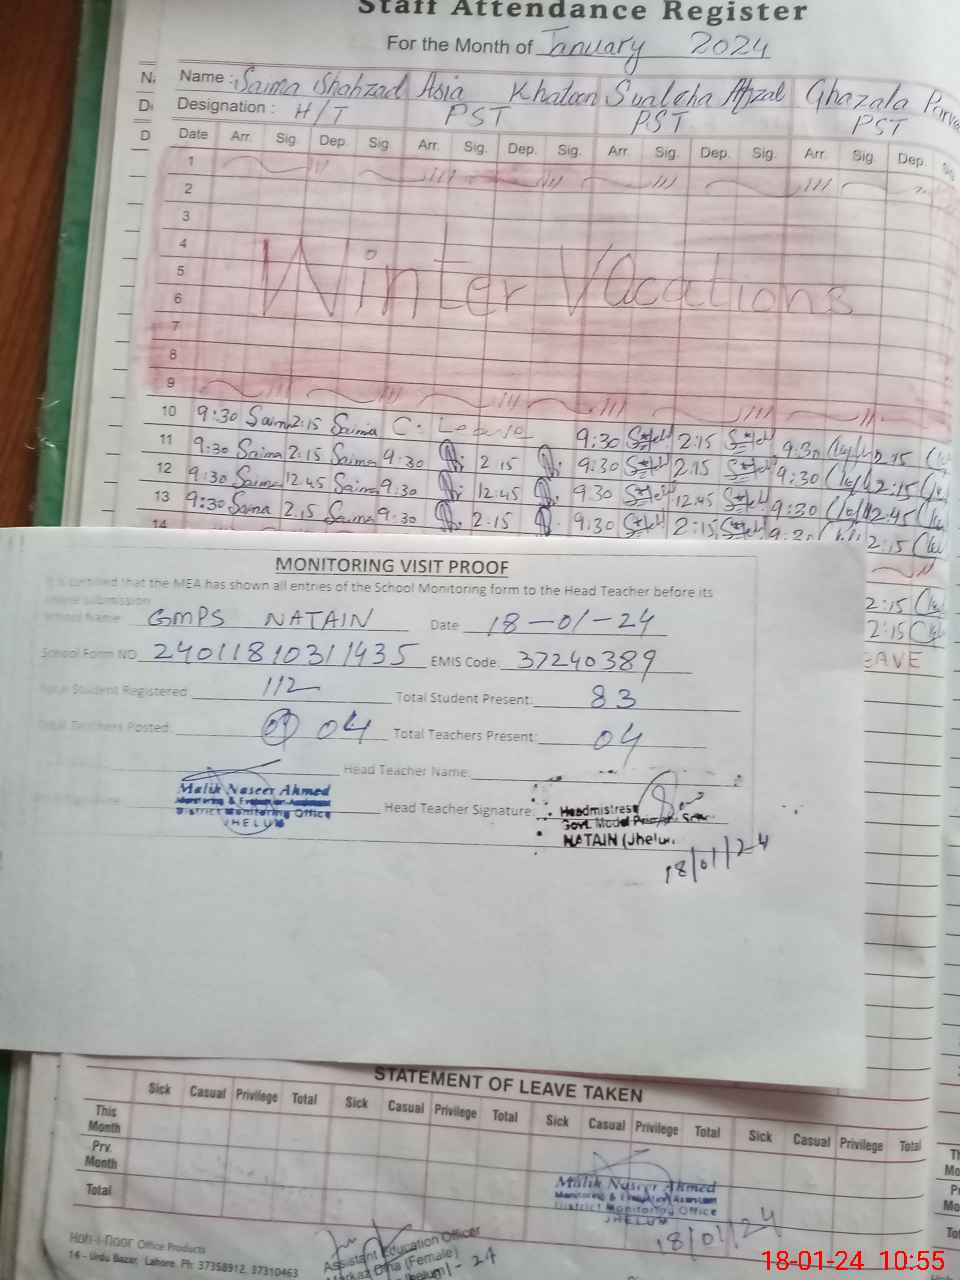 Staff Attendance Register
For the Month of January 2024
Name : Saima Shahzad Asia Khatoon Afzal Ghazala
Designation : H/T PST PST PST
Date Arr. Sig. Dep. Sig. Arr. Sig. Dep. Sig. Arr. Sig. Dep. Sig. Arr. Sig. Dep. Sig
1
2
3
4
5
6
7
8
9
Winter Vacations
10 9:30 Saima 2:15 Saima C. Leave 9:30 2:15 9:30 2:15
11 9:30 Saima 2:15 Saima 9:30 2:15 9:30 2:15 9:30 2:15
12 9:30 Saima 12:45 Saima 9:30 12:45 9:30 12:45 9:30 12:45
13 9:30 Saima 2:15 Saima 9:30 2:15 9:30 2:15 9:30 2:15
14
2:15
2:15
EAVE
MONITORING VISIT PROOF
It is certified that the MEA has shown all entries of the School Monitoring form to the Head Teacher before its
online submission
School Name GMPS NATAIN Date 18-01-24
School Form NO 24011810311435 EMIS Code: 37240389
Total Student Registered 112 Total Student Present: 83
Total Teachers Posted: 04 Total Teachers Present: 04
Head Teacher Name:
Malik Naseer Ahmed
Monitoring & Evaluation Assistant
District Monitoring Office
JHELUM
Head Teacher Signature:
Headmistress
Govt. Model Primary
NATAIN (Jhelum
18/01/24
STATEMENT OF LEAVE TAKEN
Sick Casual Privilege Total Sick Casual Privilege Total Sick Casual Privilege Total Sick Casual Privilege Total
This Month
Prv. Month
Total
Malik Naseer Ahmed
Monitoring & Evaluation Assistant
District Monitoring Office
JHELUM
18/01/24
Koh-i-Noor Office Products
14 - Urdu Bazar, Lahore. Ph: 37358912, 37310463
Assistant Education Officer
Markaz (Female)
18-01-24 10:55